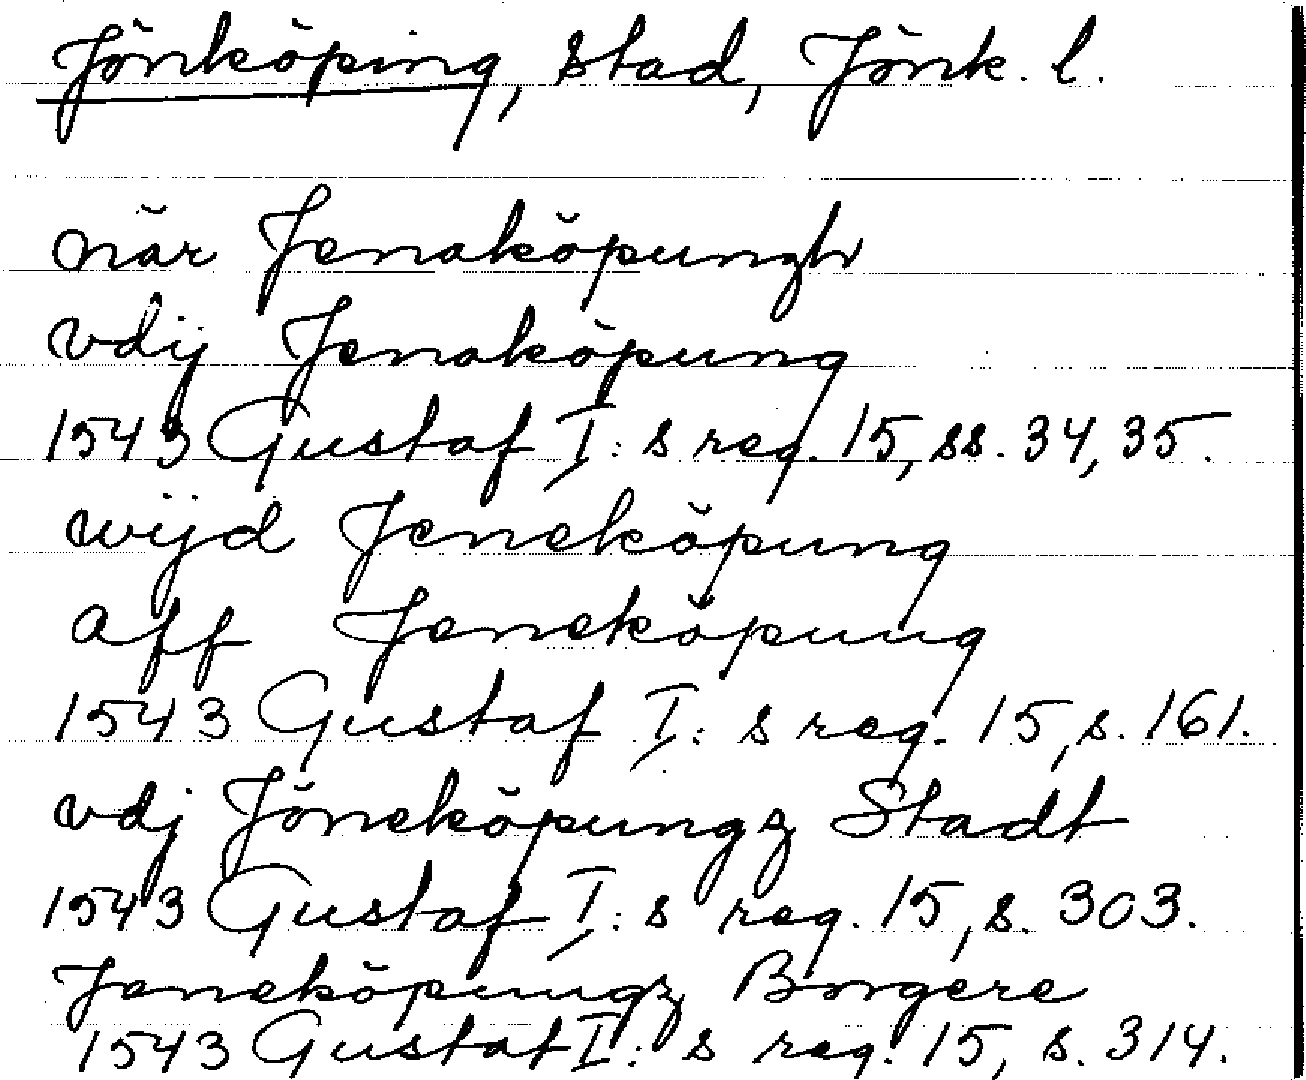 Jönköping, stad, Jönk. l.
när Jenaköpungh
vdij Jenaköpung
1543 Gustaf I: s reg. 15, ss. 34, 35.
wijd Jeneköpung
aff Jeneköpung
1543 Gustaf I: s reg. 15, s. 161.
vdj Jöneköpungz Stadt
1543 Gustaf I: s reg. 15, s. 303.
Jeneköpungz Borgere
1543 Gustaf I: s reg. 15, s. 314.